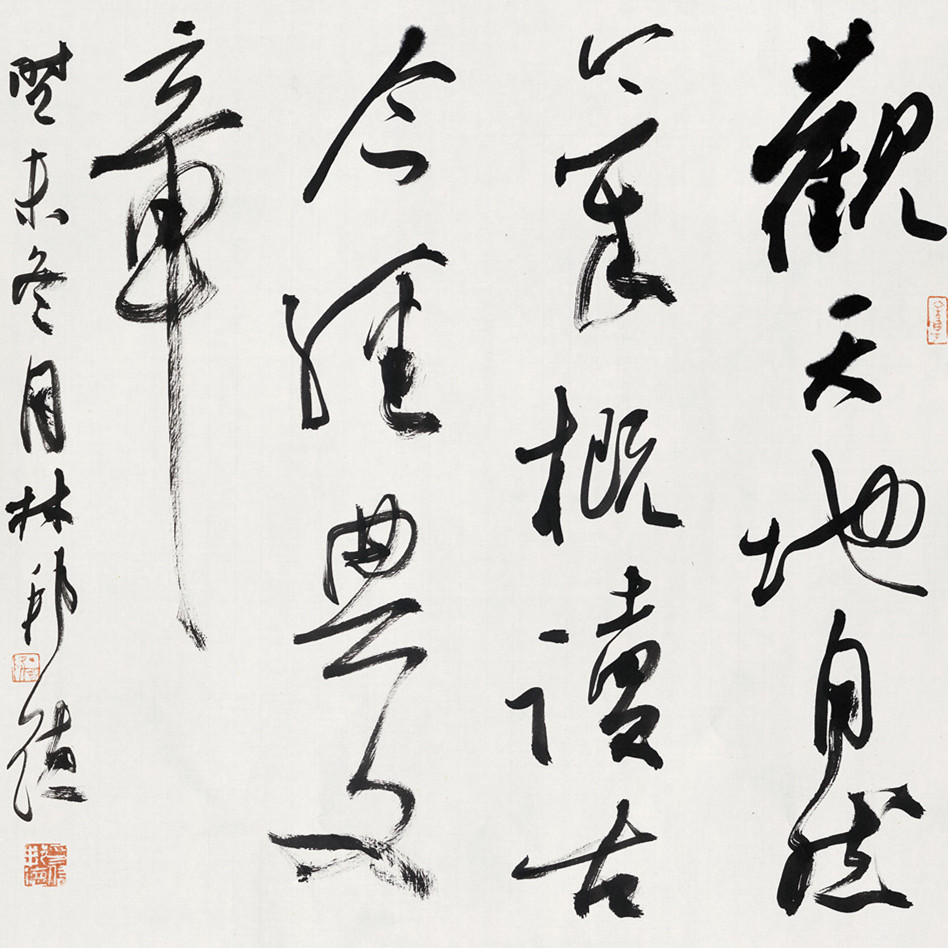 觀天地自然
之氣概讀古
今經典文
章
癸未冬月林邦德